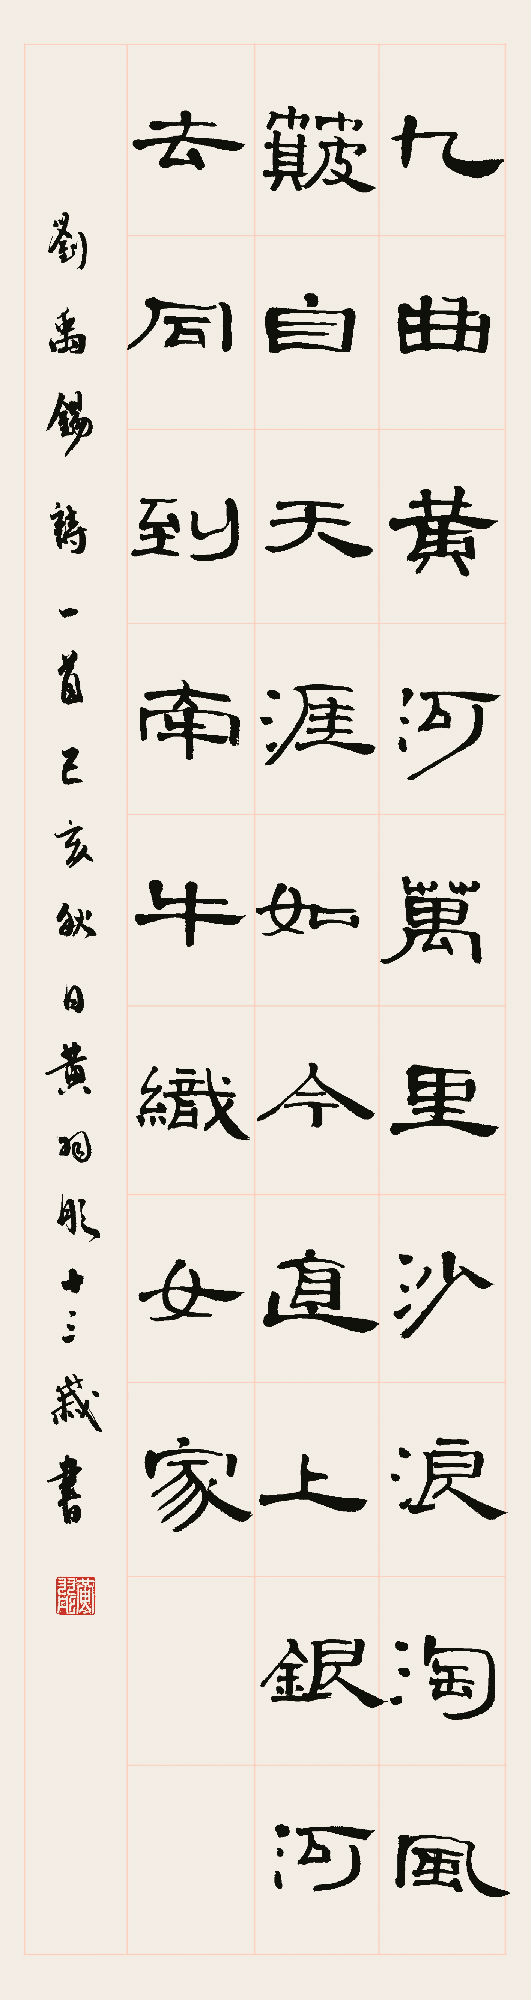 九曲黃河萬里沙浪淘風
簸自天涯如今直上銀河
去同到牽牛織女家
劉禹錫詩一首己亥秋日黃羽彤十三歲書
黃羽彤